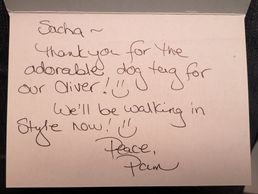 Sacha ~
Thank you for the
adorable dog tag for
our Oliver!
We'll be walking in
Style now!
Peace,
Pam